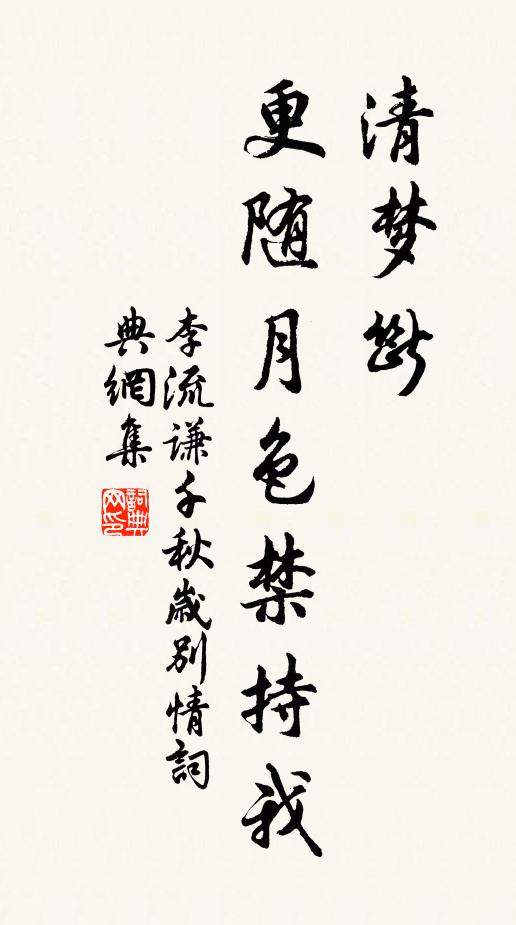 清梦断
更随月色禁持我
李流謙千秋歲别情詞
典網集
詞典网印